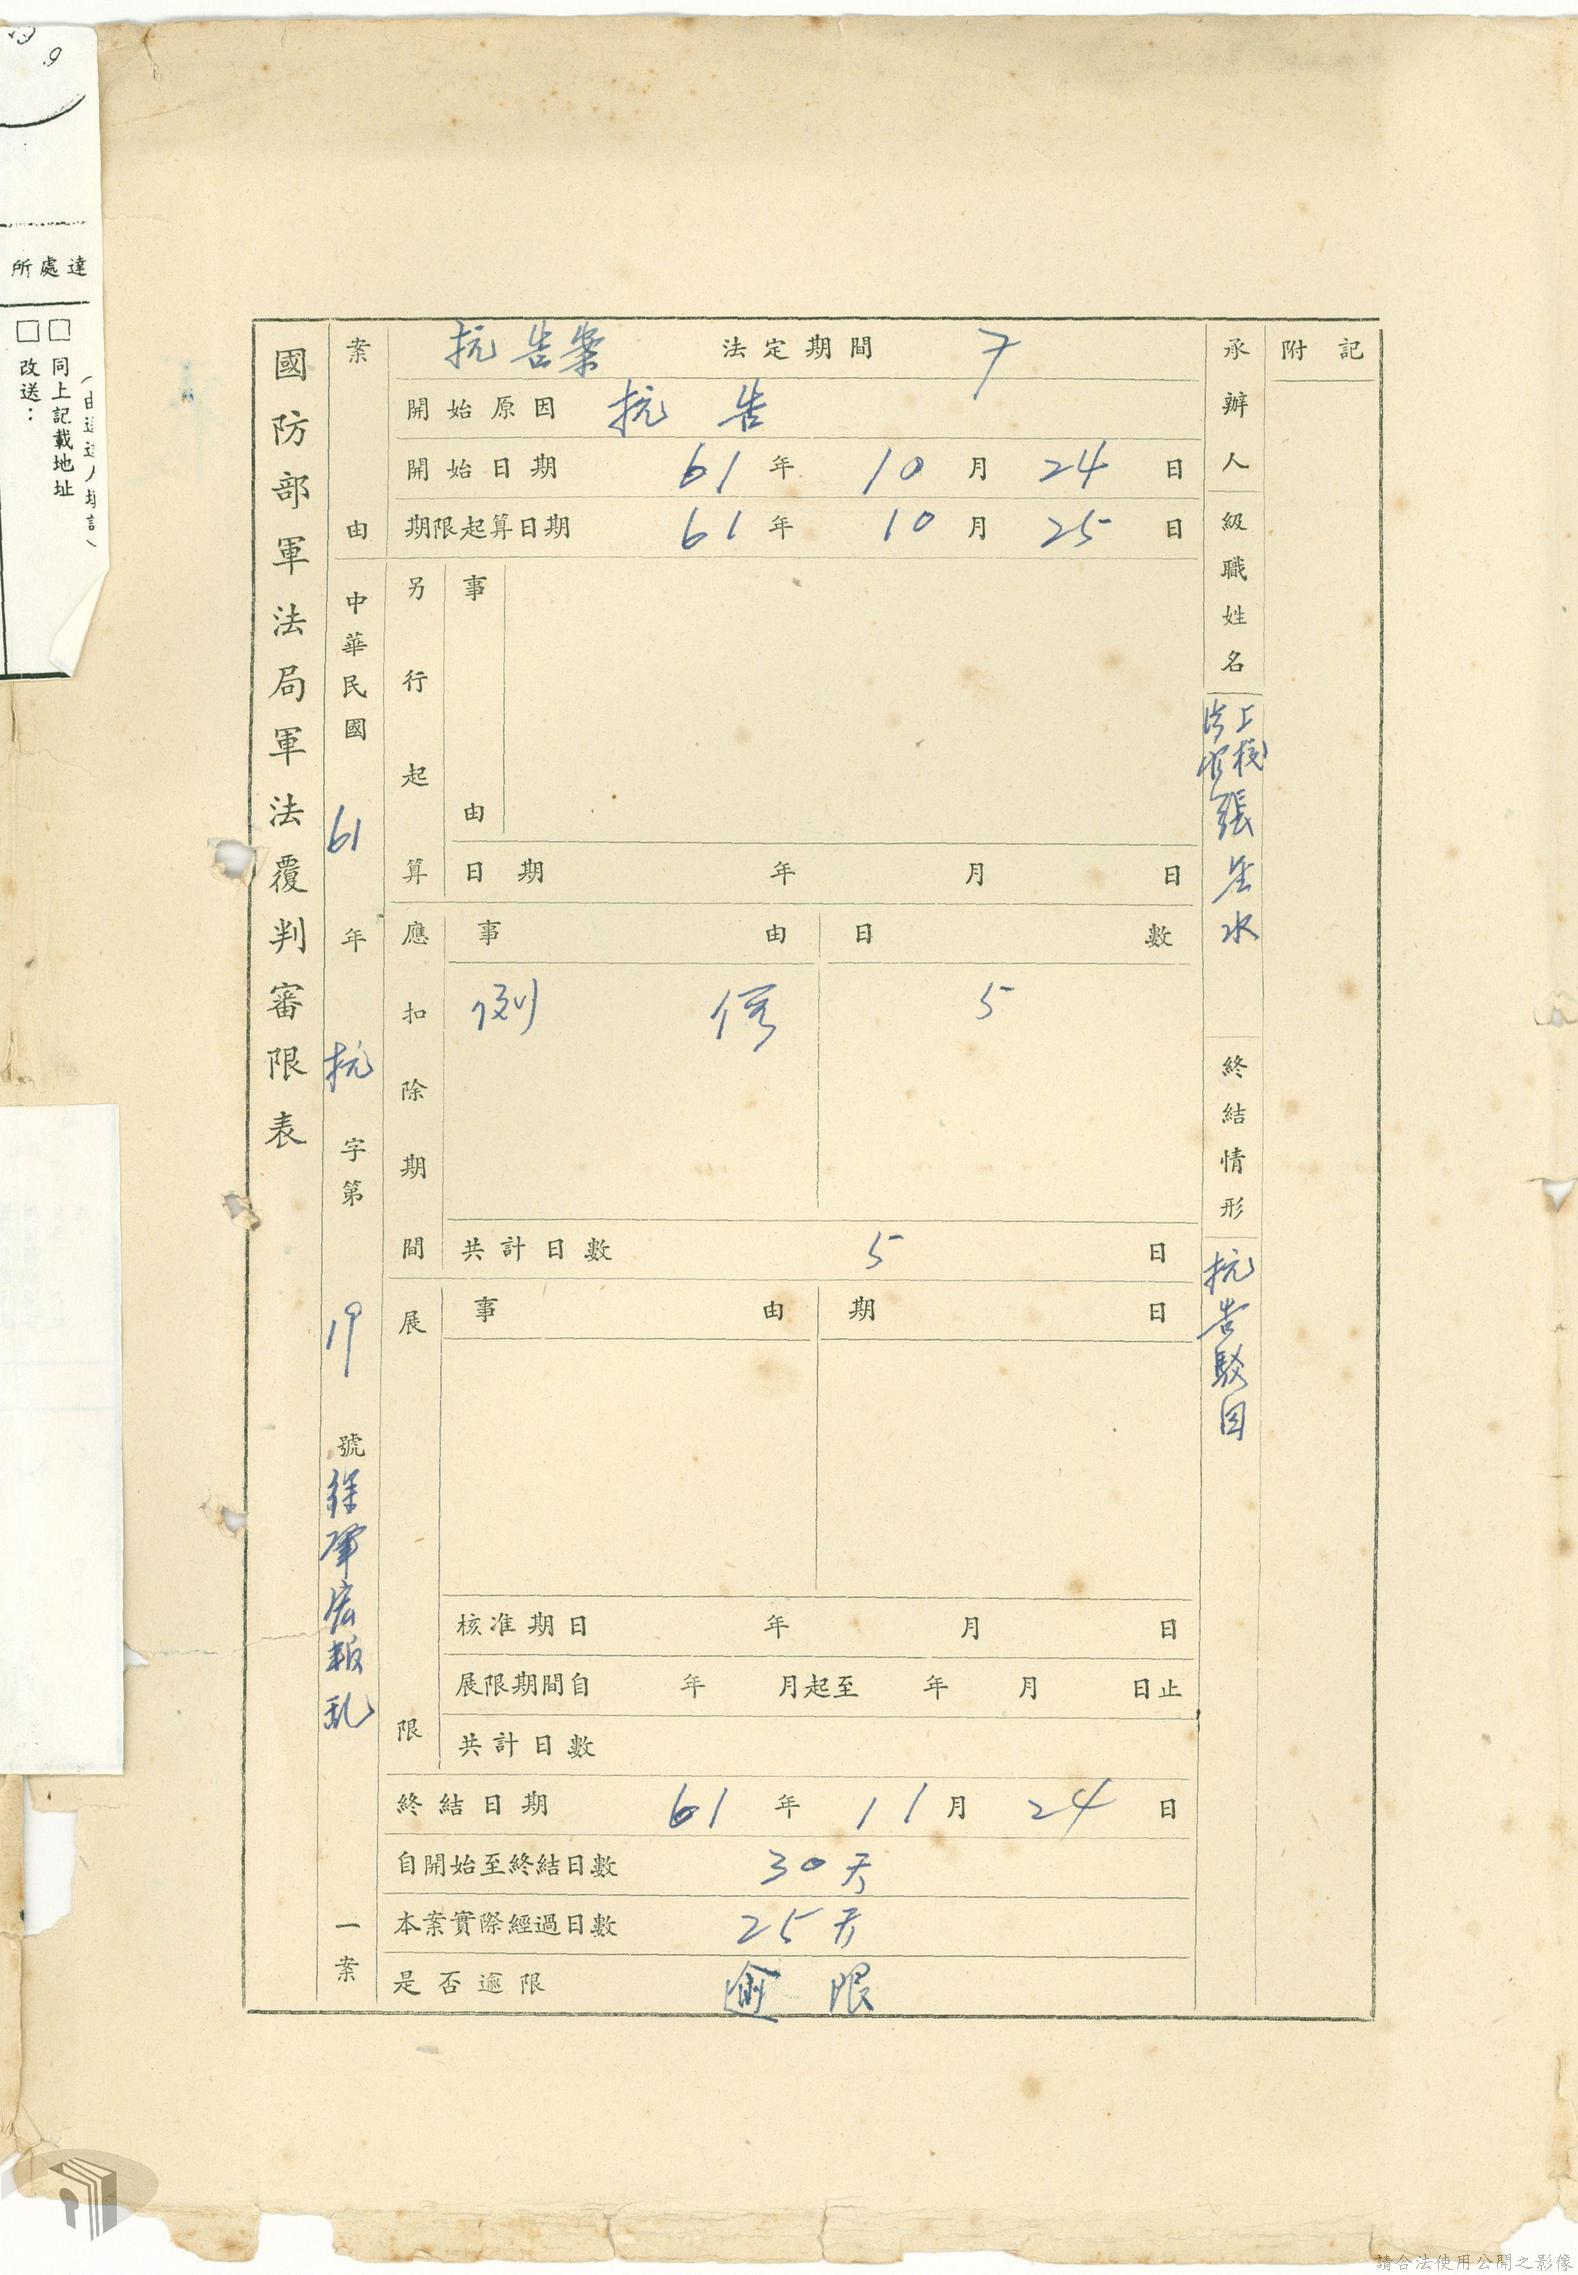 國防部軍法局軍法覆判審限表
中華民國61年抗字第19號徐軍宏叛乱一案
案由
抗告案 法定期間 7
開始原因 抗告
開始日期 61年10月24日
期限起算日期 61年10月25日
另行起算
事由
日期 年 月 日
應扣除期間
事由 日數
例假 5
共計日數 5日
展限
事由 期日
核准期日 年 月 日
展限期間自 年 月起至 年 月 日止
共計日數
終結日期 61年11月24日
自開始至終結日數 30天
本案實際經過日數 25天
是否逾限 逾限
承辦人級職姓名
上校
張 水
終結情形
抗告駁回
附記
達處所
同上記載地址
改送：
請合法使用公開之影像